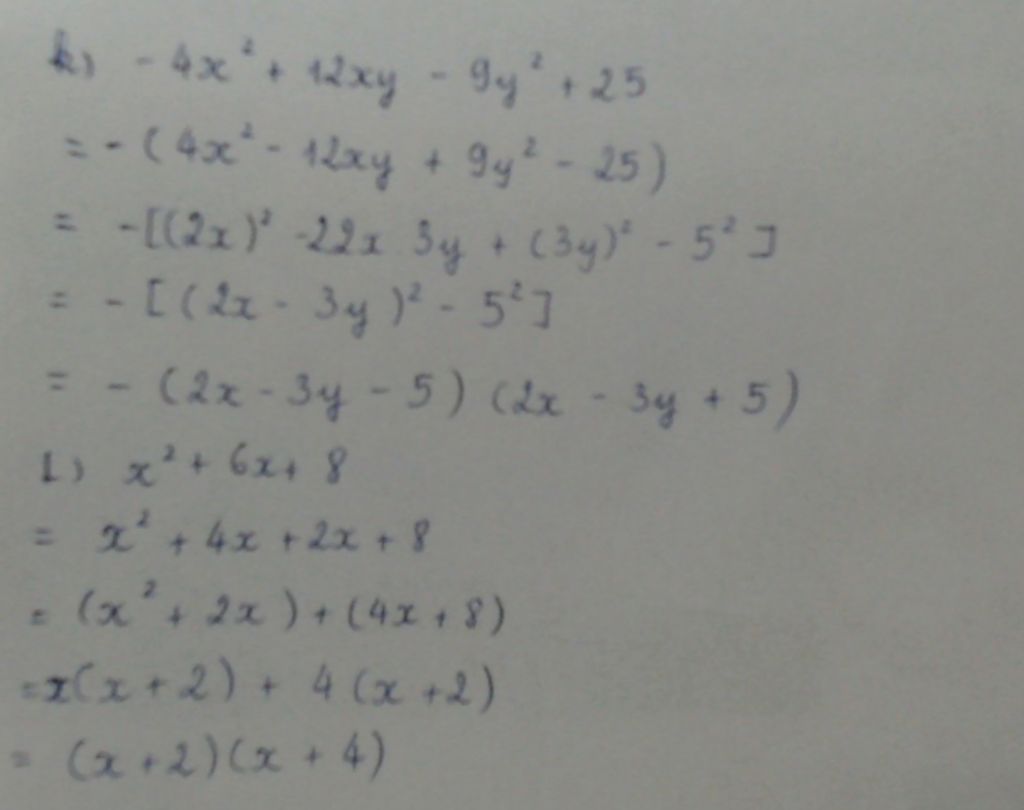 k) - 4x² + 12xy - 9y² + 25
= - ( 4x² - 12xy + 9y² - 25 )
= - [(2x)² - 22x 3y + (3y)² - 5² ]
= - [ ( 2x - 3y )² - 5² ]
= - (2x - 3y - 5 ) (2x - 3y + 5 )
l) x² + 6x + 8
= x² + 4x + 2x + 8
= (x² + 2x ) + (4x + 8)
= x(x + 2) + 4 (x + 2)
= (x + 2)(x + 4)